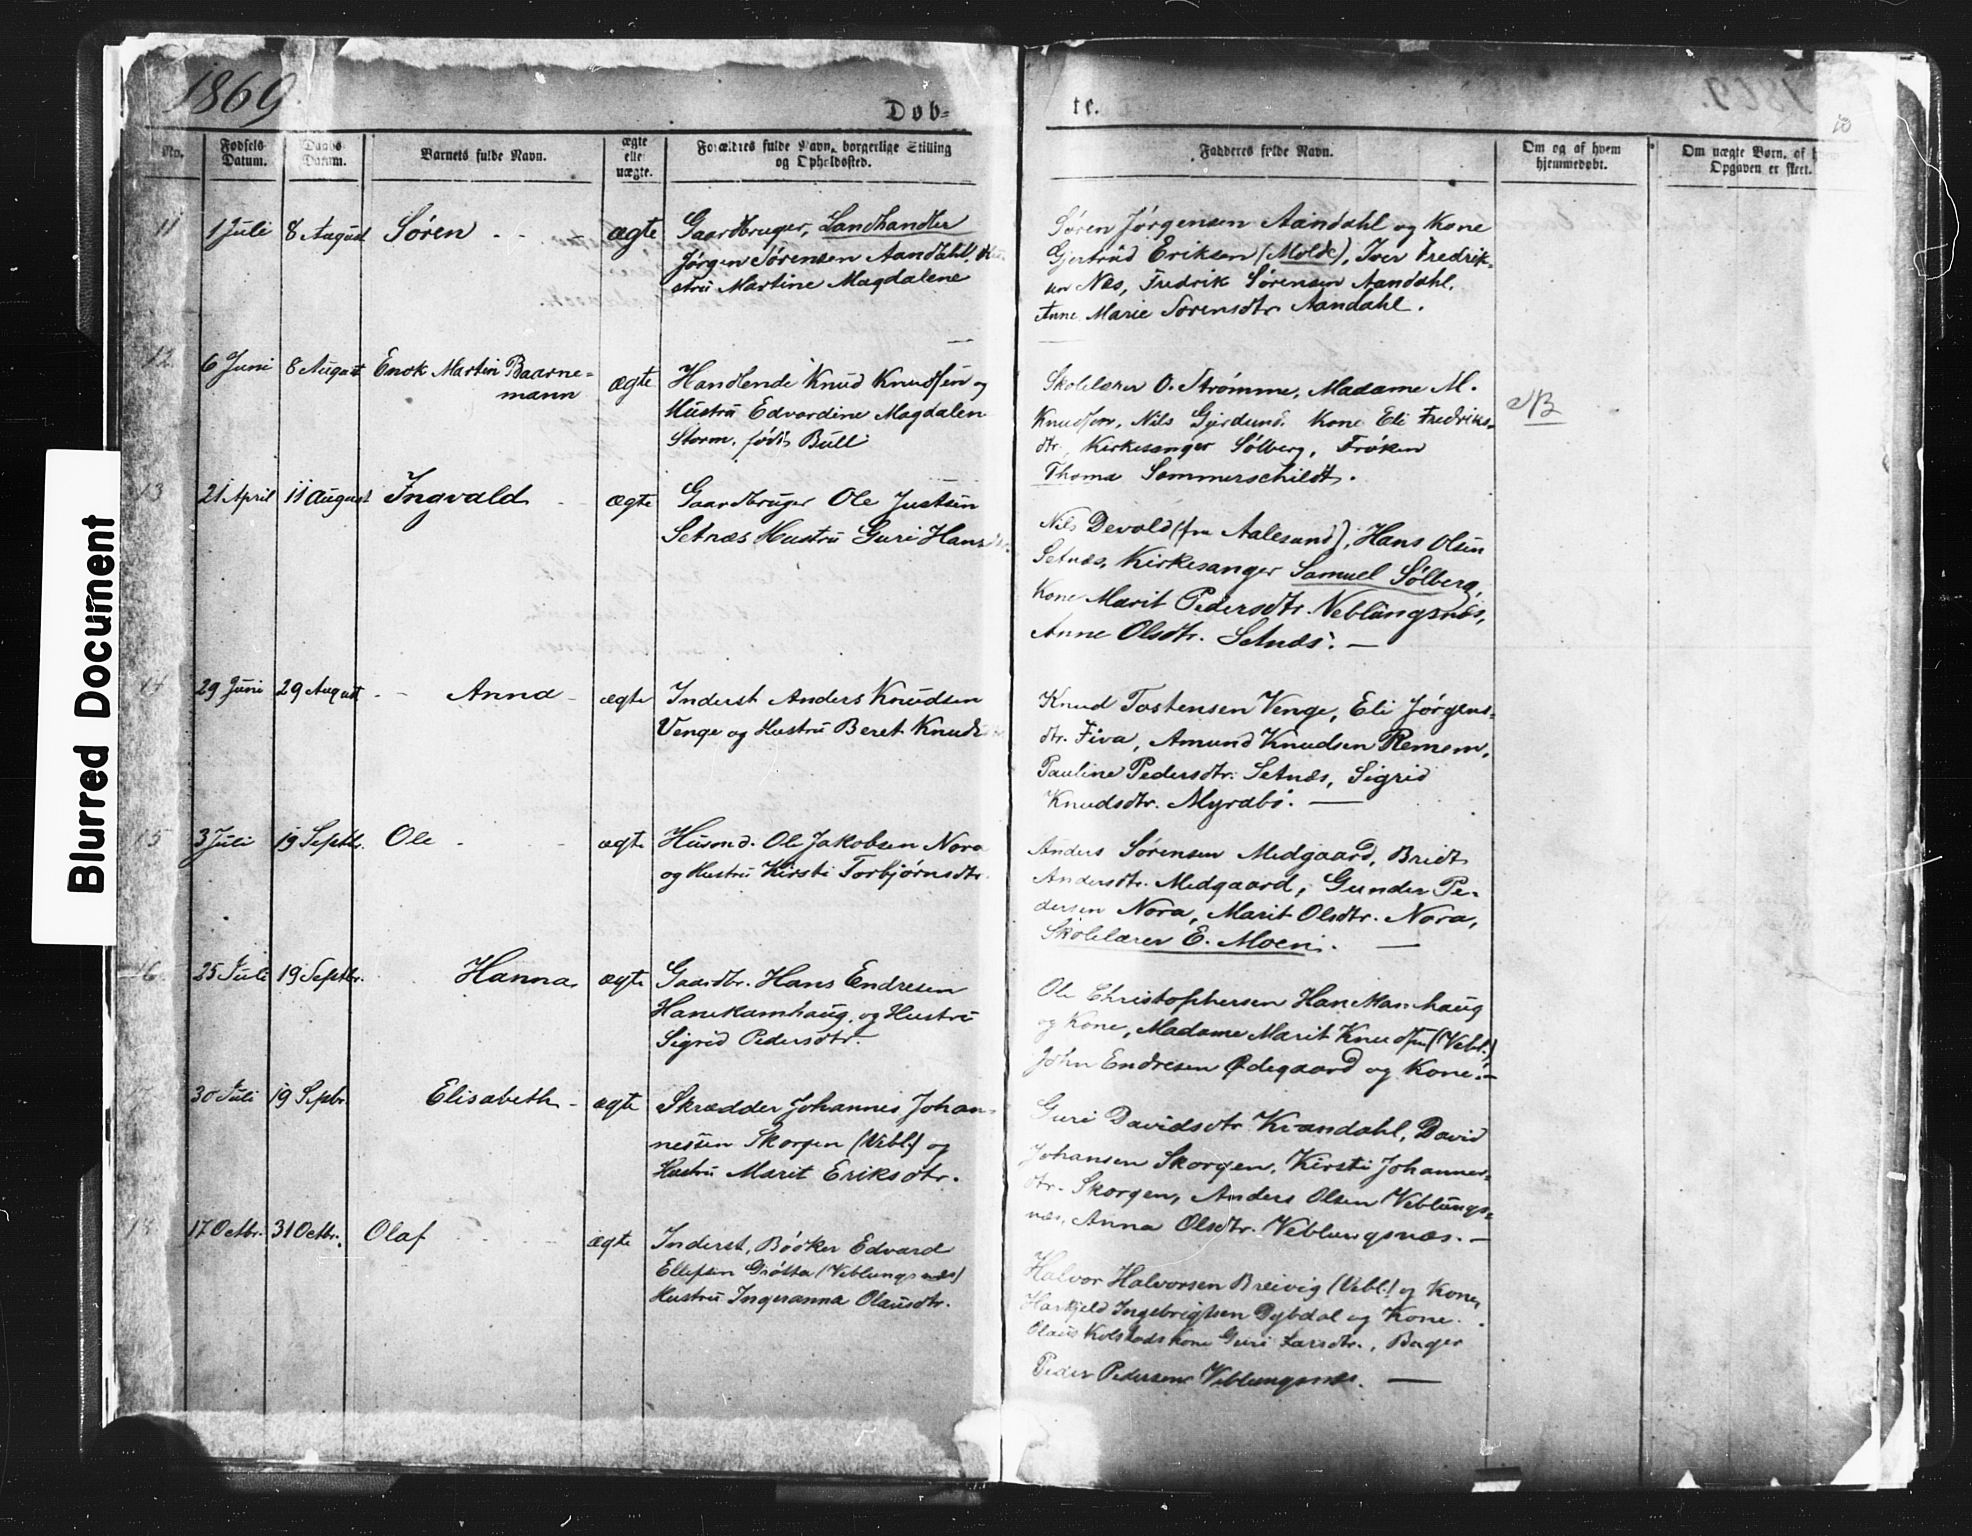 Blurred Document
1869
Døb-
te.
10
No.
Fødsels-
Datum.
Daabs
Datum.
Barnets fulde Navn.
ægte
elle
uægte.
Forældres fulde Navn, borgerlige Stilling
og Opholdssted.
Faddernes fulde Navn.
Om og af hvem
hjemmedøbt.
Om uægte Børn, af h
Opgaven er skeet.
11
1 Juli
8 August
Søren
ægte
Gaardbruger, Landhandler
Jørgen Sørensen Aandahl, Hu
stru Martine Magdalene
Søren Jørgensen Aandahl og Kone
Gjertrud Eriksen (Molde), Iver Fredrik-
sen Nes, Fredrik Sørensen Aandahl,
Anne Marie Sørensdtr Aandahl.
12
6 Juni
8 August
Enok Martin Baarne-
mann
ægte
Handlende Knud Knudsen og
Hustru Edvardine Magdalen
Storm, født Bull
Skolelærer O. Strømme, Madame M.
Knudsen, Nils Gjerdund, Kone Eli Fredriks-
dtr, Kirkesanger Sølberg, Frøken
Thoma Sommerschildt.
NB
13
21 April
11 August
Ingvald
ægte
Gaardbruger Ole Justsen
Setnæs Hustru Guri Hans
Nils Devold (fra Aalesund), Hans Olsen
Setnæs, Kirkesanger Samuel Sølberg,
Kone Marit Pedersdtr. Veblungsnæs,
Anne Olsdtr. Setnæs. —
14
29 Juni
29 August
Anna
ægte
Inderst Anders Knudsen
Venge og Hustru Beret Knuds
Knud Tostensen Venge, Eli Jørgens-
dtr. Fiva, Amund Knudsen Remem,
Pauline Pedersdtr. Setnæs, Sigrid
Knudsdtr. Myrabø. —
15
3 Juli
19 Septb.
Ole
ægte
Husmd. Ole Jakobsen Nora
og Hustru Kirsti Torbjørnsdtr.
Anders Sørensen Midgaard, Bridt
Andersdtr. Midgaard, Gunder Pe-
dersen Nora, Marit Olsdtr. Nora,
Skolelærer E. Moen. —
16
25 Juli
19 Septbr.
Hanna
ægte
Gaardbr. Hans Endresen
Hanekamhaug og Hustru
Sigrid Pedersdtr.
Ole Christophersen Hanekamhaug
og Kone, Madame Marit Knudsen (Vebl.)
John Endresen Ødegaard og Kone. —
17
30 Juli
19 Sepbr.
Elisabeth
ægte
Skrædder Johannes Johan-
nessen Skorgen (Vebl.) og
Hustru Marit Eriksdtr.
Guri Davidsdtr. Kvandahl, David
Johansen Skorgen, Kirsti Johannes-
dtr. Skorgen, Anders Olsen Veblungs-
næs, Anna Olsdtr. Veblungsnæs. —
18
17 Octbr.
31 Octbr.
Olaf
ægte
Inderst, Bøóker Edvard
Ellefsen Grøtta (Veblungsnæs)
Hustru Ingeranna Olausdtr.
Halvor Halvorsen Breivig (Vebl.) og Kone,
Harkjeld Ingebrigtsen Dybdal og Kone.
Olaus Kolstads Kone Guri Larsdtr., Bager
Peder Pedersen Veblungsnæs. —